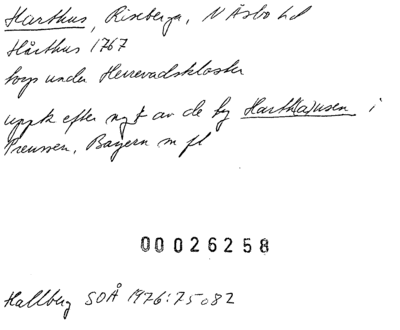 Harthus, Riseberga, N Åsbo hd
Hårthus 1767
torp under Herrevadskloster
uppk efter ngt av de by Harth(a)usen i
Preussen, Bayern m fl
00026258
Hallberg SOÅ 1976:75 o 82